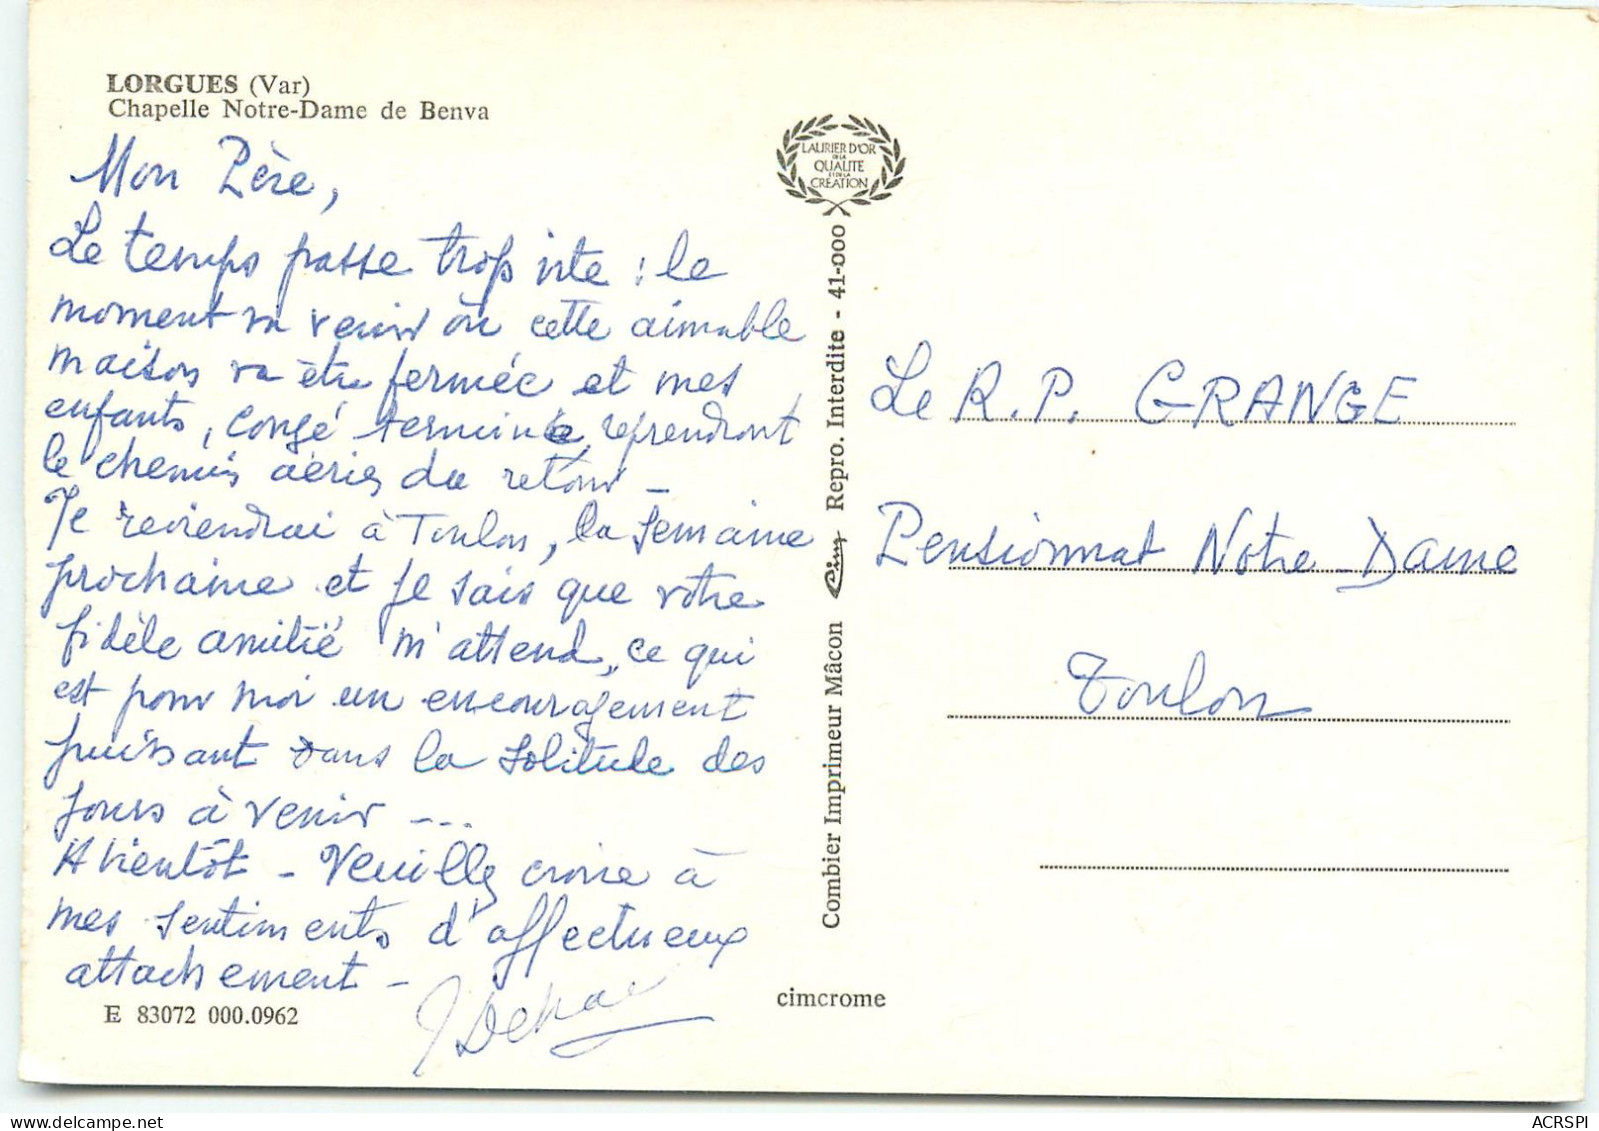 LORGUES (Var)
Chapelle Notre-Dame de Benva
Mon Père,
Le temps passe trop vite : le
moment va venir où cette aimable
maison va être fermée et mes
enfants, congé terminé, reprendront
le chemin aérien du retour -
Je reviendrai à Toulon, la semaine
prochaine et je sais que votre
fidèle amitié m'attend, ce qui
est pour moi un encouragement
puissant dans la solitude des
jours à venir ---
A bientôt - Veuillez croire à
mes sentiments d'affectueux
attachement -
E 83072 000.0962
LAURIER D'OR
DE LA
QUALITE
ET DE LA
CREATION
Combier Imprimeur Mâcon Cim Repro. Interdite - 41-000
cimcrome
Le R.P. GRANGE
Pensionnat Notre-Dame
Toulon
delcampe.net
ACRSPI